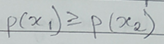 p(x₁) ≥ p(x₂)